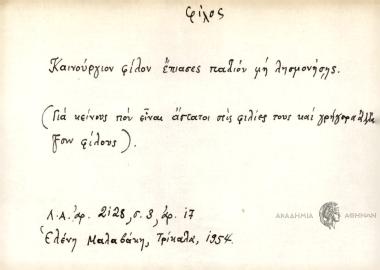 φίλος
Καινούργιον φίλον ἔπιασες παλιόν μή λησμονήσῃς.
(Γιά κείνους πού εἶναι ἄστατοι στίς φιλίες τους καί γρήγορα ἀλλά-
ζουν φίλους).
Λ.Α. ἀρ. 2128, σ. 3, ἀρ. 17
Ἑλένη Μαλαβάκη, Τρίκαλα, 1954.
ΑΚΑΔΗΜΙΑ ΑΘΗΝΩΝ